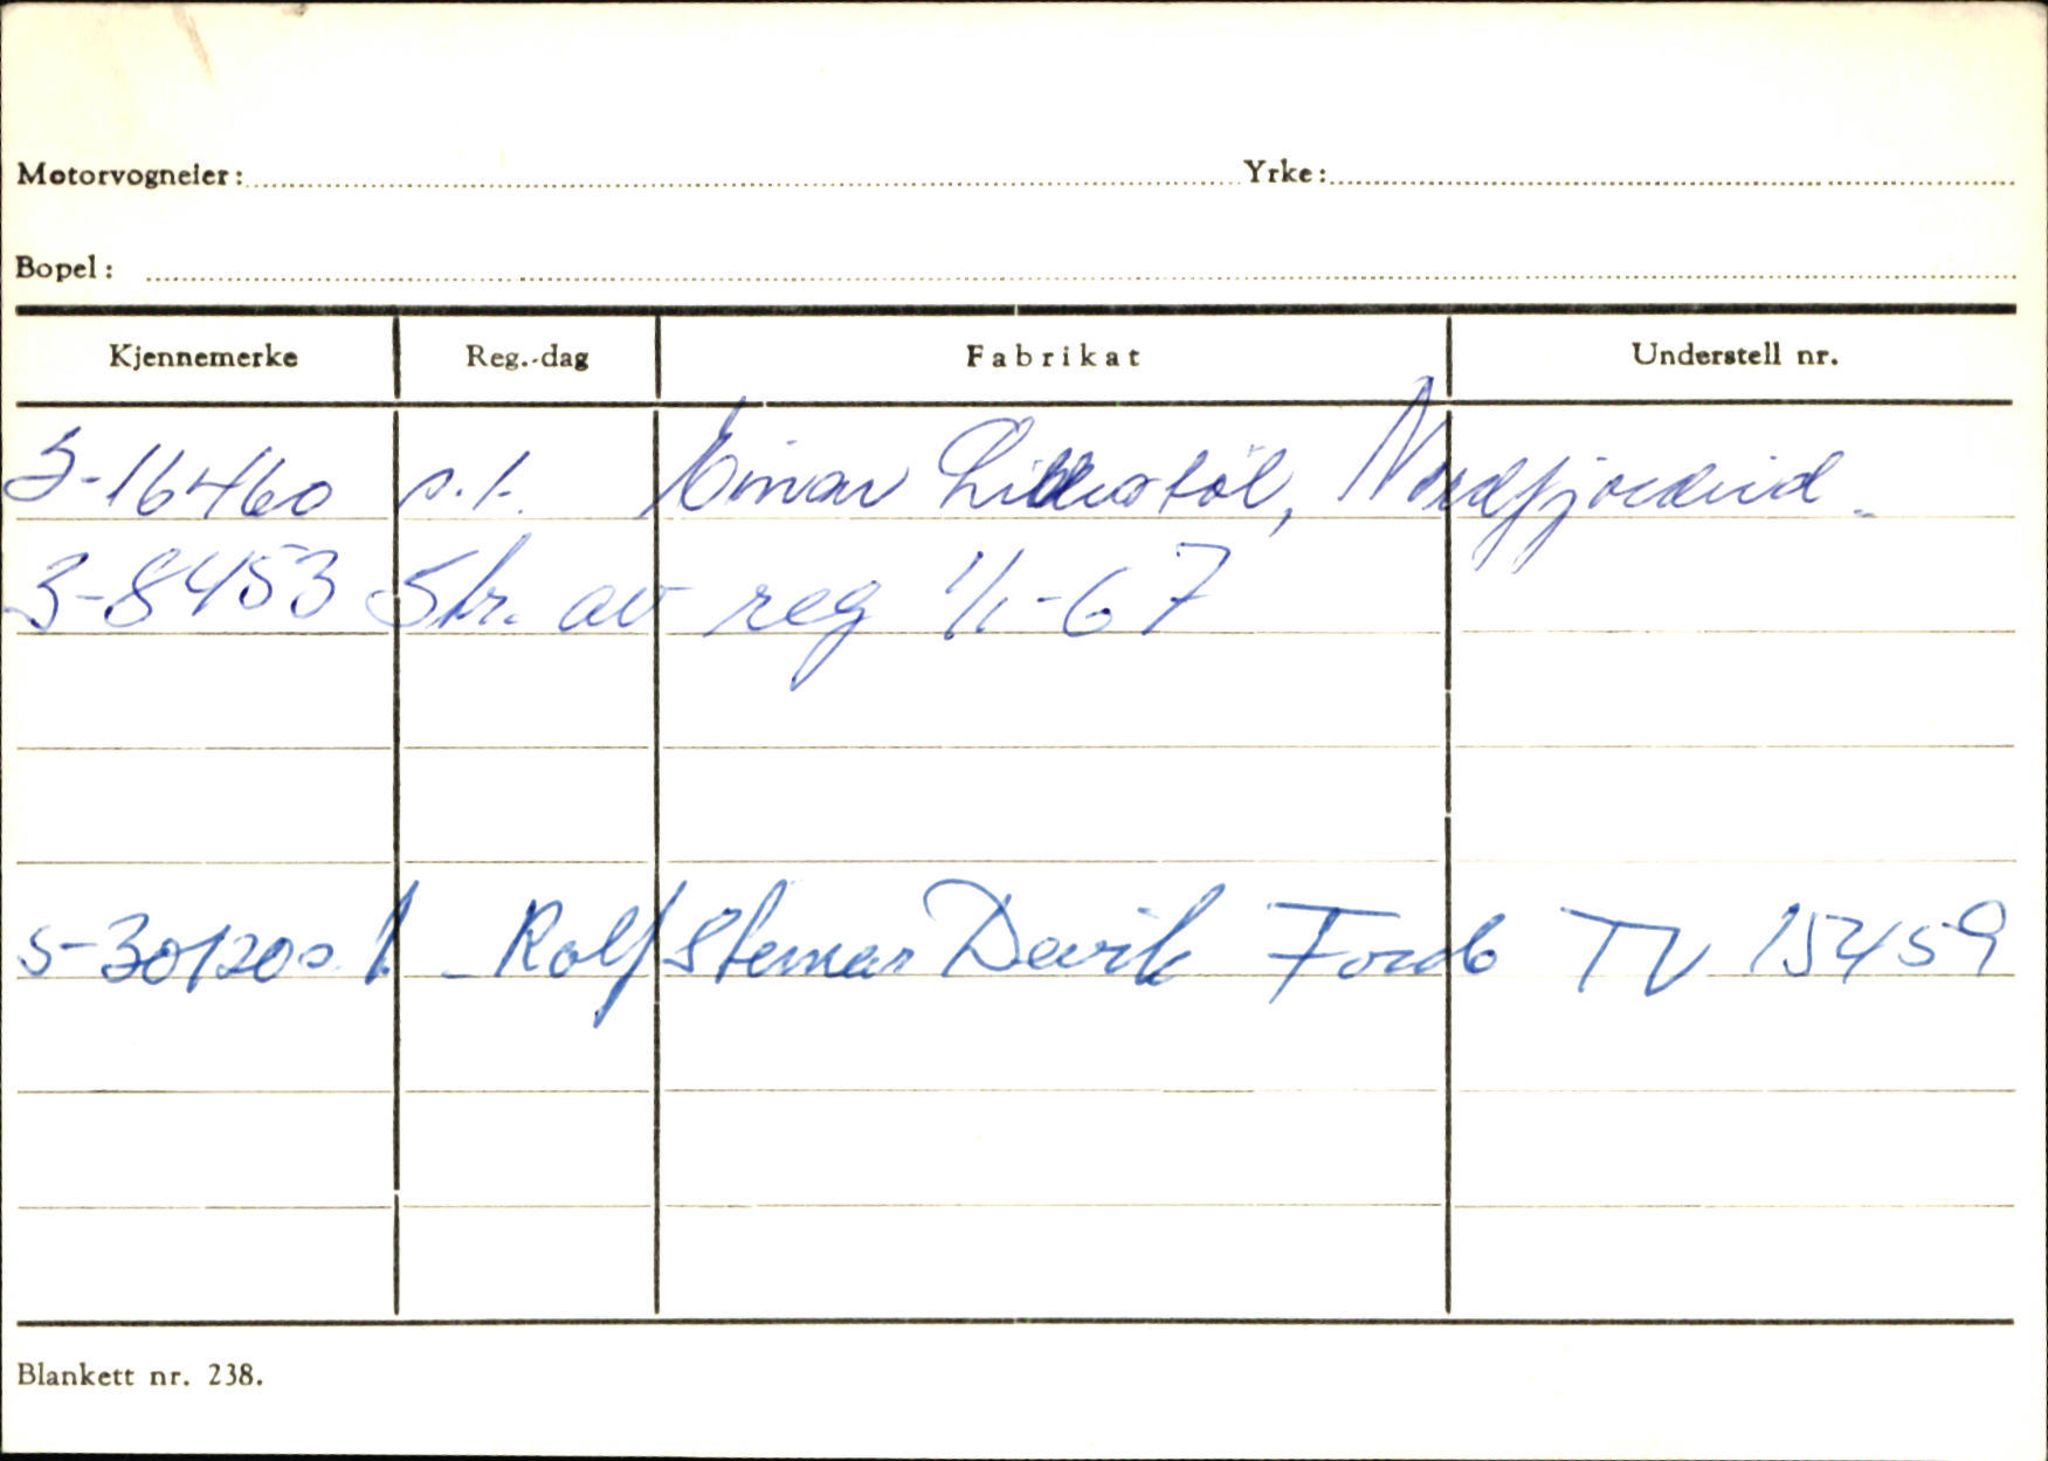 Motorvogneier: Yrke:
Bopel:
Kjennemerke Reg.-dag Fabrikat Understell nr.
S-16460 s.t. Einar Lillestöl, Nordfjordeid.
S-8453 Str. av reg 1/1-67
S-30120 s.t. - Rolf Steinar Devik Ford TV 15459
Blankett nr. 238.